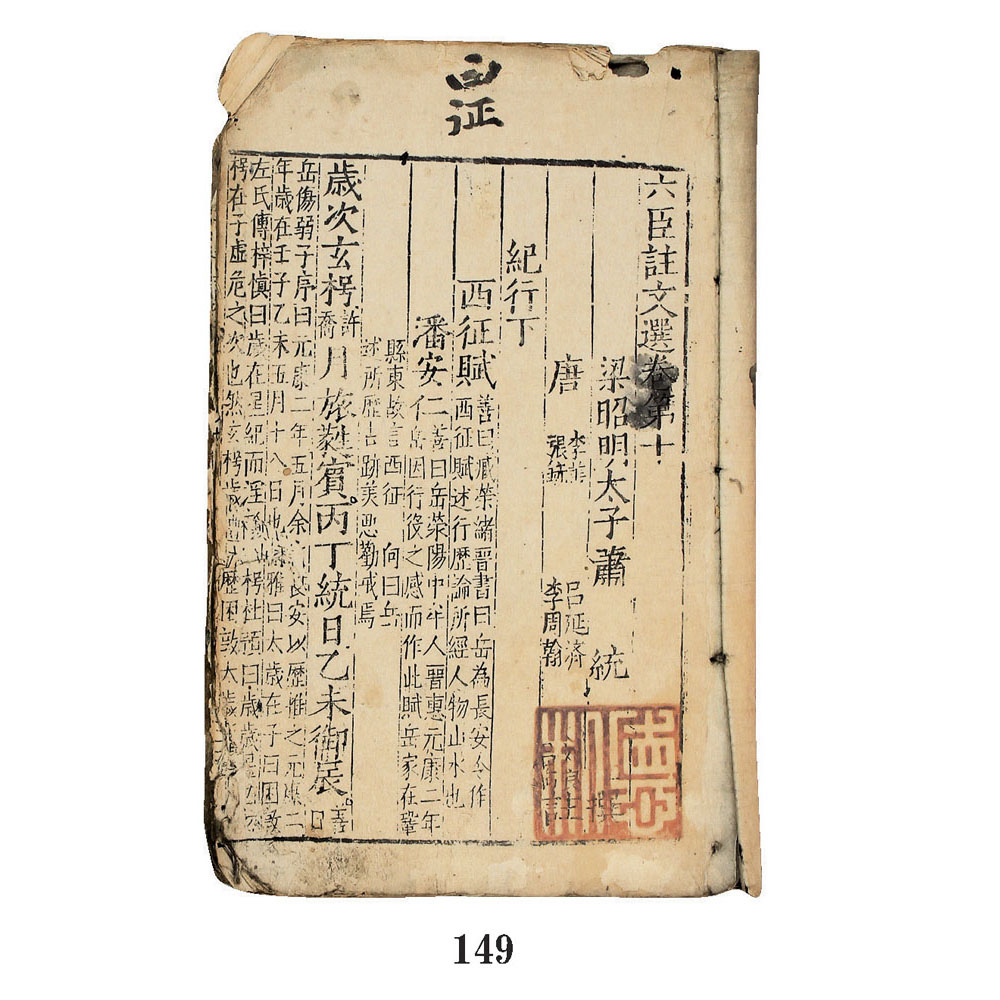 西征
六臣註文選卷第十
梁昭明太子蕭 統 撰
唐 李善 呂延濟 劉良
張銑 李周翰 呂向 註
紀行下
西征賦 善曰臧榮緒晉書曰岳為長安令作
西征賦述行歷論所經人物山水也
潘安仁 善曰岳滎陽中牟人晉惠元康二年
岳因行役之感而作此賦岳家在鞏
縣東故言西征 向曰岳
述所歷古跡美惡勸戒焉
歲次玄枵 許喬 月旅蕤賓丙丁統日乙未御辰 善曰
岳傷弱子序曰元康二年五月余之長安以歷推之元康二
年歲在壬子乙未五月十八日也爾雅曰太歲在子曰困敦
左氏傳梓慎曰歲在星紀而淫於玄枵杜預曰歲歲星也玄
枵在子虛危之次也然玄枵歲歷困敦太歲
149